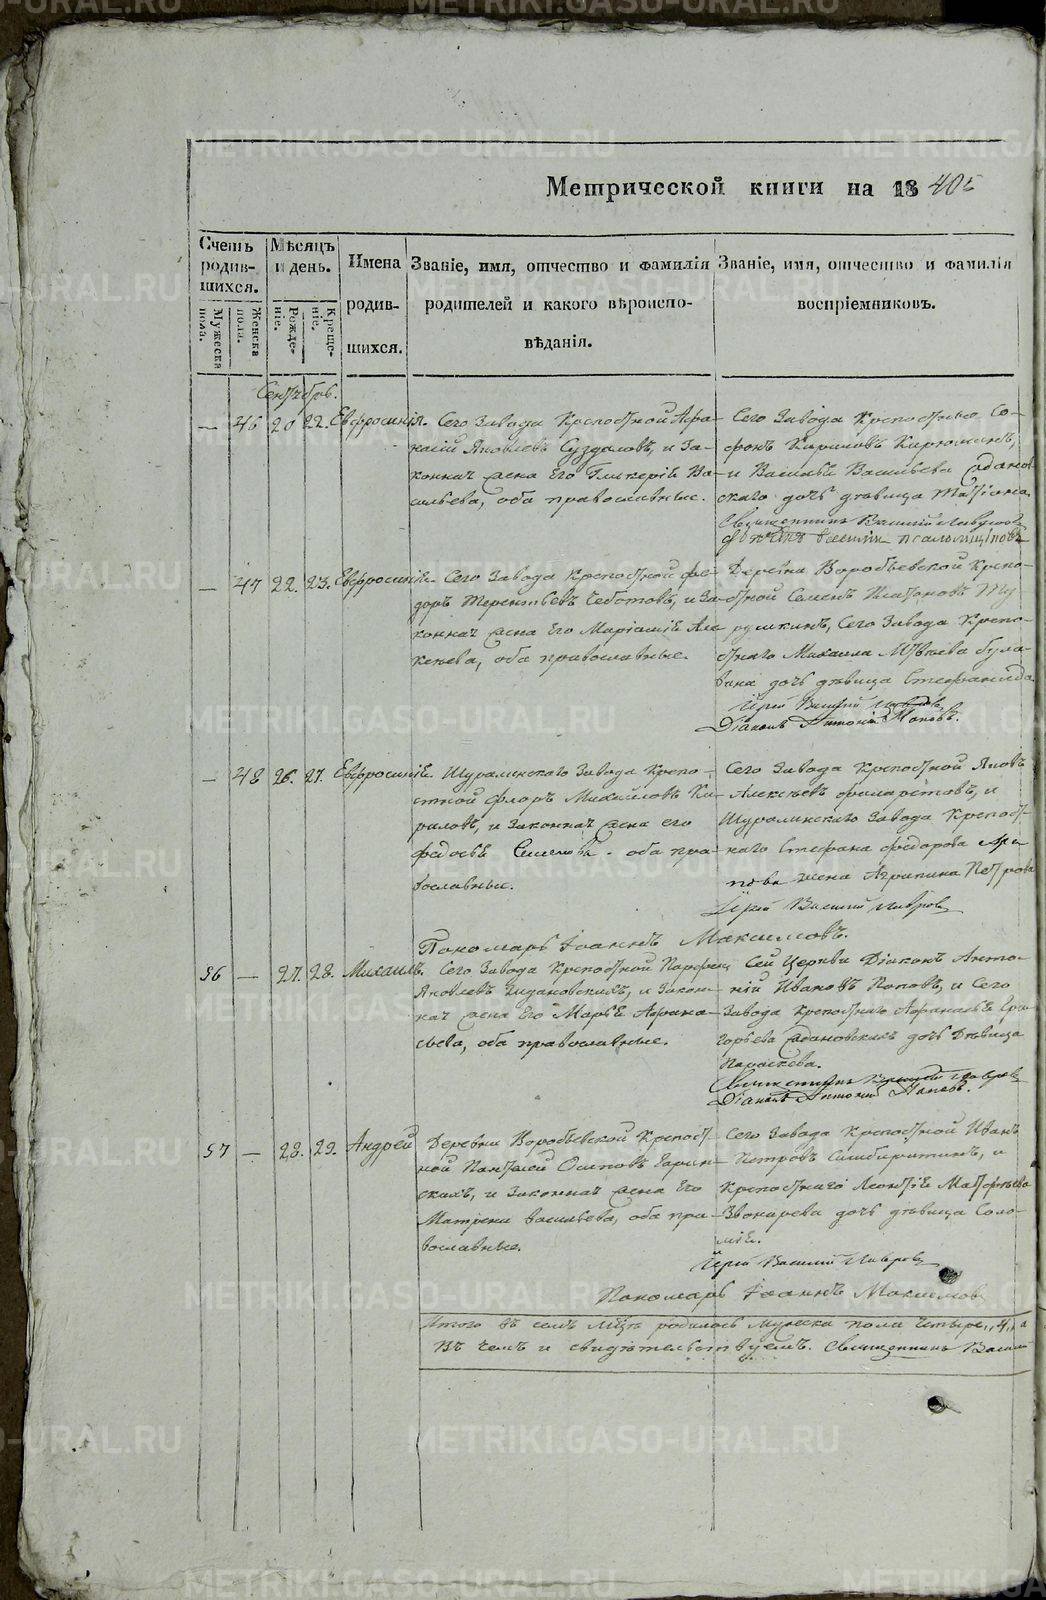 Метрической книги на 1840й
Счетъ родившихся.
Мужеска пола.
Женска пола.
Мѣсяцъ и день.
Рожденіе.
Крещеніе.
Имена родившихся.
Званіе, имя, отчество и фамилія родителей и какого вѣроисповѣданія.
Званіе, имя, отчество и фамилія воспріемниковъ.
Сентябрь.
— 46 20 22. Евфросинія.
Сего Завода Крепостной Афа-
насій Яковлевъ Суздаловъ, и За-
конная жена Его Гликерія Ва-
сильева, оба православные.
Сего Завода Крепостной Со-
фонъ Кириловъ Кирюшинъ,
и Василья Васильева
скаго дочь дѣвица Матрона.
Священникъ Василій Лавровъ
— 47 22. 23. Евфросинія.
Сего Завода Крепостной Фе-
доръ Терентьевъ Чеботовъ, и За-
конная жена Его Маріамія Але-
ксѣева, оба православные.
Деревни Воробьевской Крепо-
стной Семенъ Платоновъ
Сего Завода Крепо-
стнаго Михаила була-
вина дочь дѣвица Стефанида
Іерей Василій Лавровъ
Діаконъ Антоній Поповъ.
— 48 26. 27. Евфросинія.
Шуралинскаго Завода Крепо-
стной Флоръ Михайловъ Ки-
риловъ, и Законная жена его
Федосья Семенова. оба пра-
вославные.
Сего Завода Крепостной Яковъ
Алексѣевъ и
Шуралинскаго Завода Крепост-
наго Стефана Федорова
жена Агрипина Петрова
Іерей Василій Лавровъ
Пономарь Іоаннъ Максимовъ.
56 — 27. 28. Михаилъ.
Сего Завода Крепостной Парфен
Яковлевъ и Закон-
ная жена Его Марья Афана-
сьева, оба православные.
Сей Церкви Діаконъ Анто-
ній Ивановъ Поповъ, и Сего
Завода Крепостнаго Афанасья Гри-
горьева дочь Дѣвица
Параскева.
Священникъ Василій Лавровъ
Діаконъ Антоній Поповъ.
57 — 28. 29. Андрей
Деревни Воробьевской Крепост-
ной Пантелей Осиповъ Гарин-
скихъ, и Законная жена Его
Матрена Васильева, оба пра-
вославные.
Сего Завода Крепостной Иванъ
Петровъ Симбирятинъ, и
Крепостнаго Леонтія Матфѣева
Звонарева дочь дѣвица Соло-
мія.
Іерей Василій Лавровъ
Пономарь Іоаннъ Максимовъ
Итого въ семъ Мѣцѣ родилось Мужеска пола четыре „4„ а
Въ чемъ и свидѣтельствуемъ. Священникъ Васили